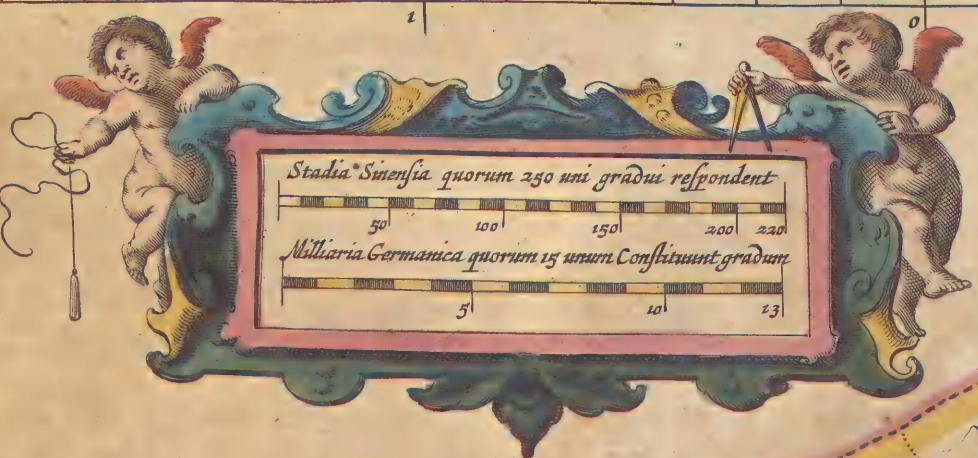 1 0
Stadia Sinensia quorum 250 uni gradui respondent
50 100 150 200 220
Milliaria Germanica quorum 15 unum Constituunt gradum
5 10 13